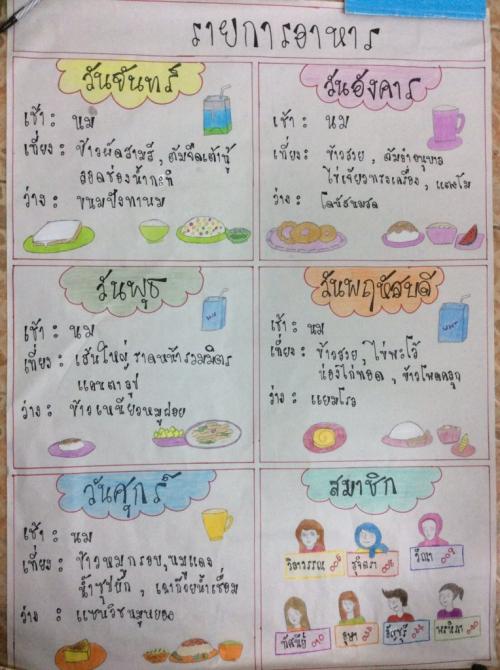 รายการอาหาร
วันจันทร์
เช้า : นม
เที่ยง : ข้าวผัดสามสี, ต้มจืดเต้าหู้
ลอดช่องน้ำกะทิ
ว่าง : ขนมปังทานม
วันอังคาร
เช้า : นม
เที่ยง : ข้าวสวย, ส้มตำอนุบาล
ไข่เจียวทรงเครื่อง, แตงโม
ว่าง : โดนัทนมสด
วันพุธ
เช้า : นม
เที่ยง : เส้นใหญ่ราดหน้ารวมมิตร
แคนตาลูป
ว่าง : ข้าวเหนียวหมูฝอย
วันพฤหัสบดี
เช้า : นม
เที่ยง : ข้าวสวย, ไข่พะโล้
น่องไก่ทอด, ข้าวโพดคลุก
ว่าง : แยมโรล
วันศุกร์
เช้า : นม
เที่ยง : ข้าวหมูกรอบ, หมูแดง,
น้ำซุปผัก,
ว่าง : แซนวิชหมูหยอง
สมาชิก
วิลาวรรณ
สุจิตรา
วีณา
ทัศนีย์
อุษา
ธัญชุรี